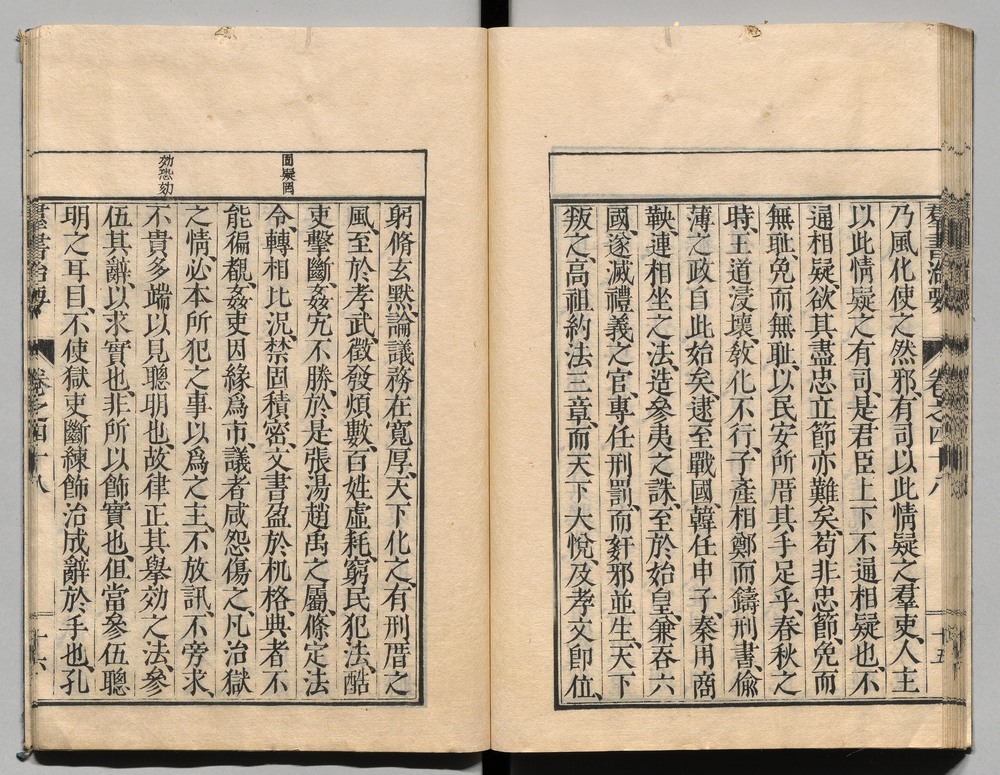 羣書治要 卷之四十八 十五
乃風化使之然邪、有司以此情疑之羣吏、人主
以此情疑之有司、是君臣上下不通相疑也、不
通相疑、欲其盡忠立節、亦難矣、苟非忠節、免而
無恥、免而無恥、以民安所厝其手足乎、春秋之
時、王道浸壞、敎化不行、子產相鄭而鑄刑書、偸
薄之政、自此始矣、逮至戰國、韓任申子、秦用商
鞅、連相坐之法、造參夷之誅、至於始皇、兼吞六
國、遂滅禮義之官、專任刑罰、而姧邪並生、天下
叛之、高祖約法三章、而天下大悅、及孝文卽位、
躬脩玄默、論議務在寬厚、天下化之、有刑厝之
風、至於孝武、徵發煩數、百姓虛耗、窮民犯法、酷
吏擊斷、姦宄不勝、於是張湯趙禹之屬、條定法
令、轉相比況、禁固積密、文書盈於机格、典者不
能徧覩、姦吏因緣爲市、議者咸怨傷之、凡治獄
之情、必本所犯之事以爲之主、不放訊、不旁求、
不貴多端以見聰明也、故律正其舉効之法、參
伍其辭、以求實也、非所以飾實也、但當參伍聰
明之耳目、不使獄吏斷練飾治成辭於手也、孔
固疑罔
効恐劾
羣書治要 卷之四十八 十六